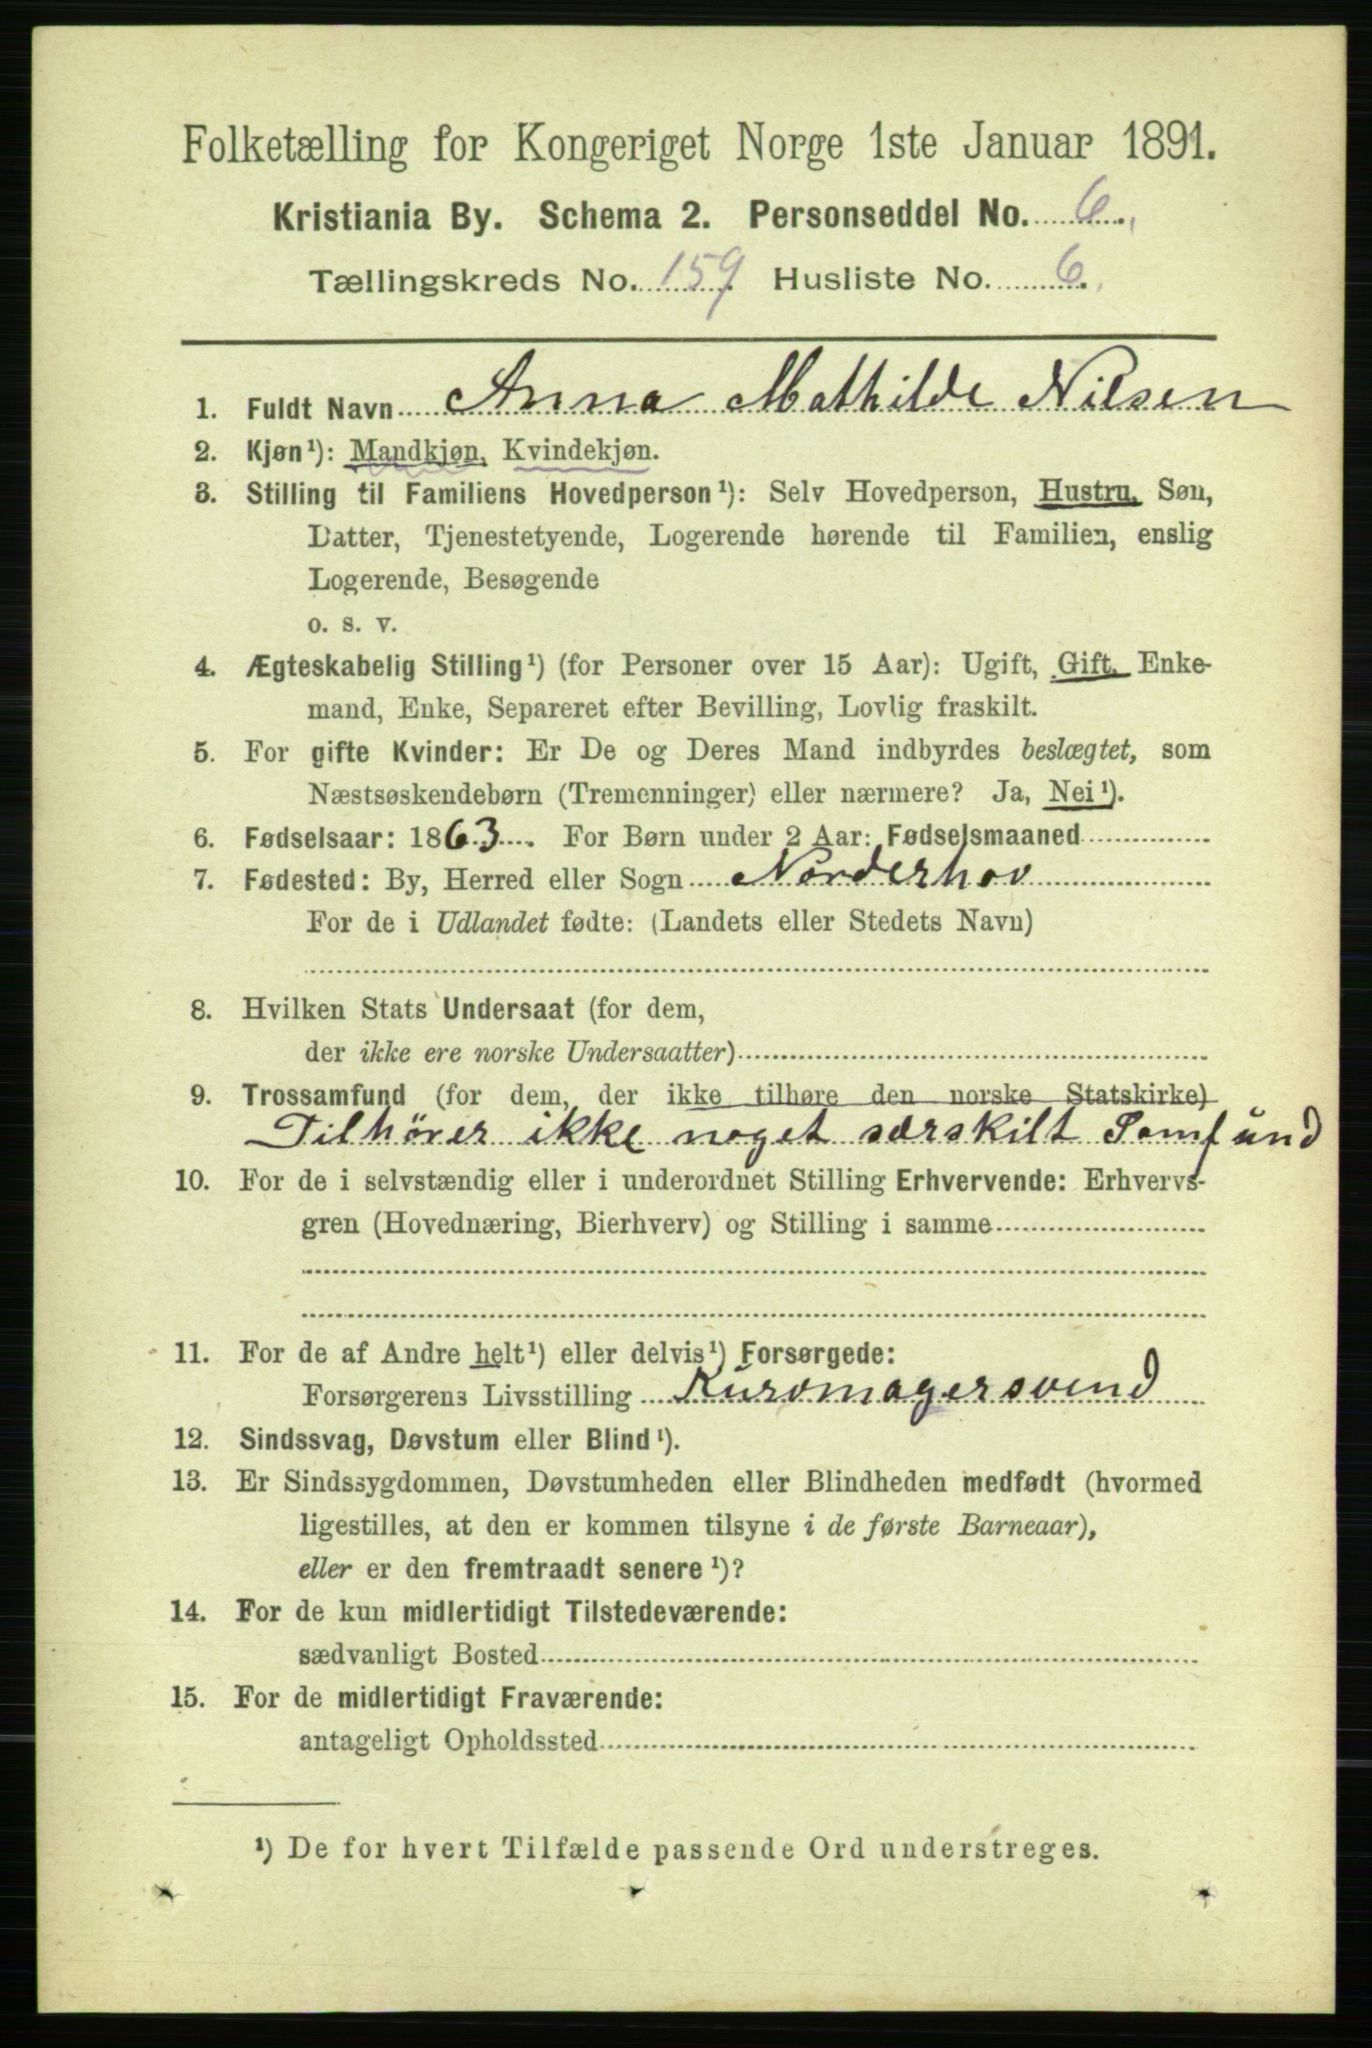 Folketælling for Kongeriget Norge 1ste Januar 1891.
Kristiania By. Schema 2. Personseddel No. 6.
Tællingskreds No. 159 Husliste No. 6.
1. Fuldt Navn Anna Mathilde Nilsen
2. Kjøn¹): Mandkjøn, Kvindekjøn.
3. Stilling til Familiens Hovedperson¹): Selv Hovedperson, Hustru, Søn,
Datter, Tjenestetyende, Logerende hørende til Familien, enslig
Logerende, Besøgende
o. s. v.
4. Ægteskabelig Stilling¹) (for Personer over 15 Aar): Ugift, Gift, Enke-
mand, Enke, Separeret efter Bevilling, Lovlig fraskilt.
5. For gifte Kvinder: Er De og Deres Mand indbyrdes beslægtet, som
Næstsøskendebørn (Tremenninger) eller nærmere? Ja, Nei¹).
6. Fødselsaar: 1863. For Børn under 2 Aar: Fødselsmaaned
7. Fødested: By, Herred eller Sogn Norderhov
For de i Udlandet fødte: (Landets eller Stedets Navn)
8. Hvilken Stats Undersaat (for dem,
der ikke ere norske Undersaatter)
9. Trossamfund (for dem, der ikke tilhøre den norske Statskirke)
Tilhører ikke noget særskilt Samfund
10. For de i selvstændig eller i underordnet Stilling Erhvervende: Erhvervs-
gren (Hovednæring, Bierhverv) og Stilling i samme
11. For de af Andre helt¹) eller delvis¹) Forsørgede:
Forsørgerens Livsstilling Kurvmagersvend
12. Sindssvag, Døvstum eller Blind¹).
13. Er Sindssygdommen, Døvstumheden eller Blindheden medfødt (hvormed
ligestilles, at den er kommen tilsyne i de første Barneaar),
eller er den fremtraadt senere¹)?
14. For de kun midlertidigt Tilstedeværende:
sædvanligt Bosted
15. For de midlertidigt Fraværende:
antageligt Opholdssted
¹) De for hvert Tilfælde passende Ord understreges.